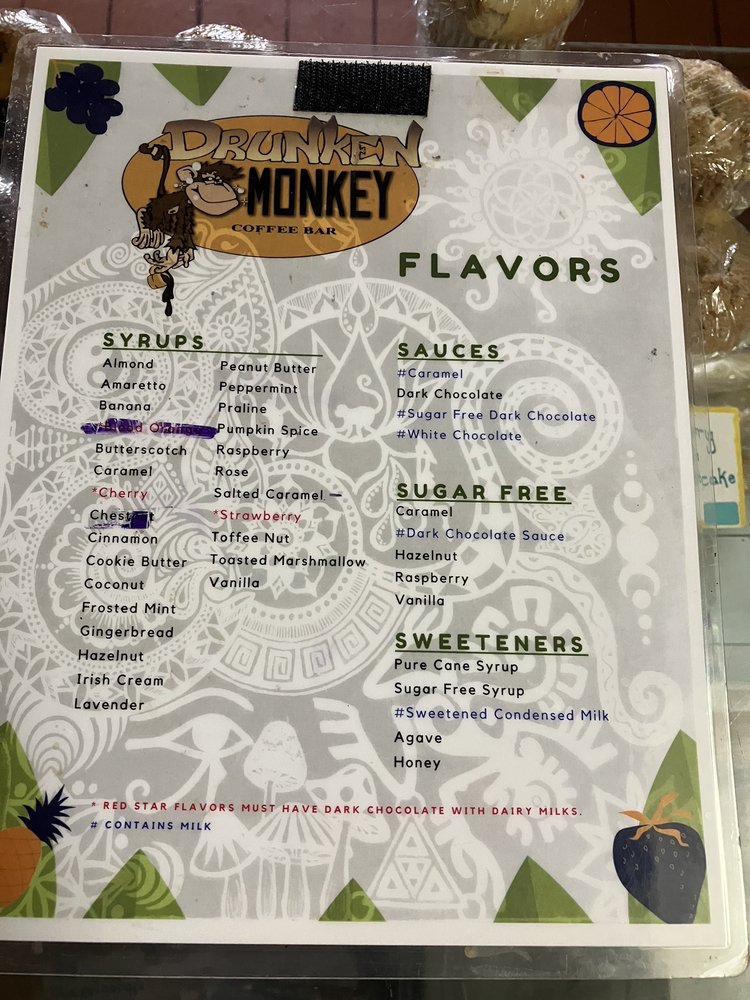 DRUNKEN
MONKEY
COFFEE BAR
FLAVORS
SYRUPS
Almond
Amaretto
Banana
Butterscotch
Caramel
*Cherry
Chestnut
Cinnamon
Cookie Butter
Coconut
Frosted Mint
Gingerbread
Hazelnut
Irish Cream
Lavender
Peanut Butter
Peppermint
Praline
Pumpkin Spice
Raspberry
Rose
Salted Caramel
*Strawberry
Toffee Nut
Toasted Marshmallow
Vanilla
SAUCES
#Caramel
Dark Chocolate
#Sugar Free Dark Chocolate
#White Chocolate
SUGAR FREE
Caramel
#Dark Chocolate Sauce
Hazelnut
Raspberry
Vanilla
SWEETENERS
Pure Cane Syrup
Sugar Free Syrup
#Sweetened Condensed Milk
Agave
Honey
* RED STAR FLAVORS MUST HAVE DARK CHOCOLATE WITH DAIRY MILKS.
# CONTAINS MILK